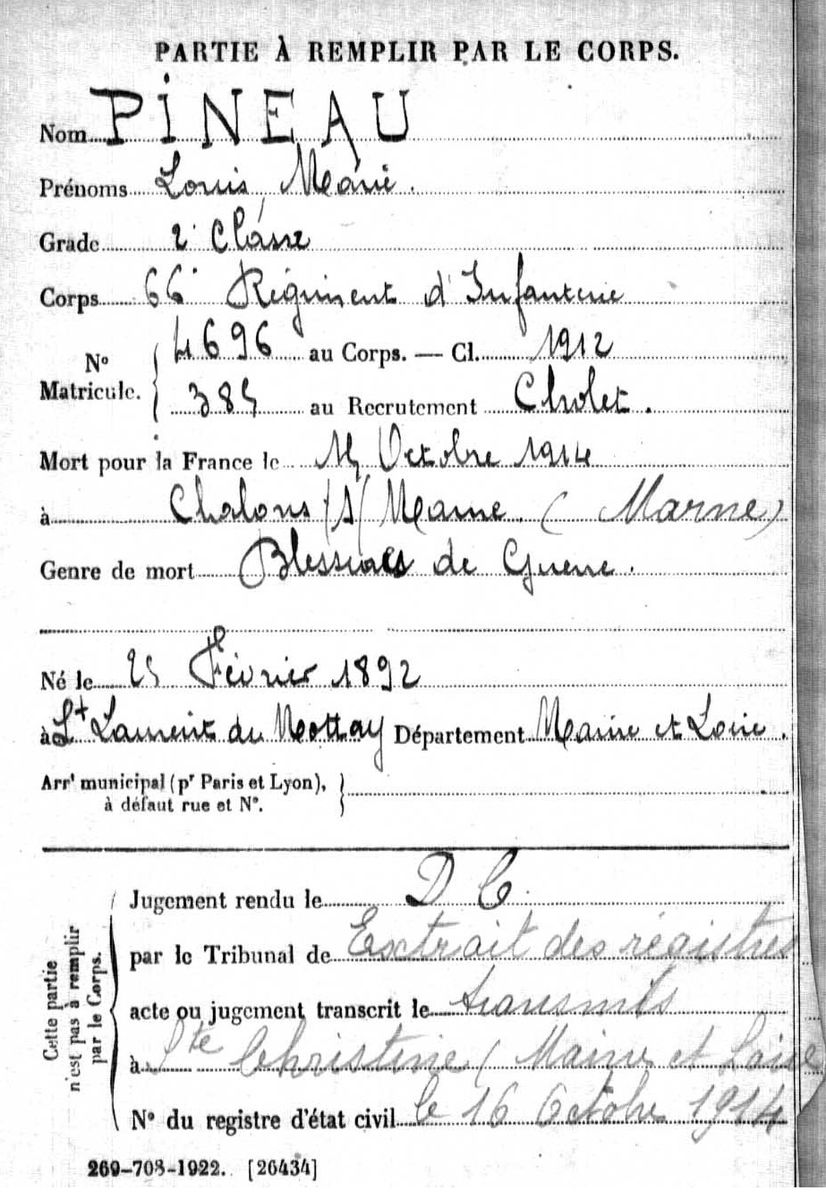 PARTIE À REMPLIR PAR LE CORPS.
Nom PINEAU
Prénoms Louis, Marie.
Grade 2e Classe
Corps 66e Régiment d'Infanterie
No Matricule. 4696 au Corps. — Cl. 1912
385 au Recrutement Cholet.
Mort pour la France le Octobre 1914
à Chalons /S/ Marne (Marne)
Genre de mort Blessures de Guerre.
Né le 25 Février 1892
à St Laurent du Mottay Département Maine et Loire.
Arrt municipal (pr Paris et Lyon),
à défaut rue et No.
Cette partie n'est pas à remplir par le Corps.
Jugement rendu le D C.
par le Tribunal de Extrait des régistres
acte ou jugement transcrit le transmis
à Ste Christine (Maine et Loire
No du registre d'état civil le 16 Octobre 1914
269-708-1922. [26434]